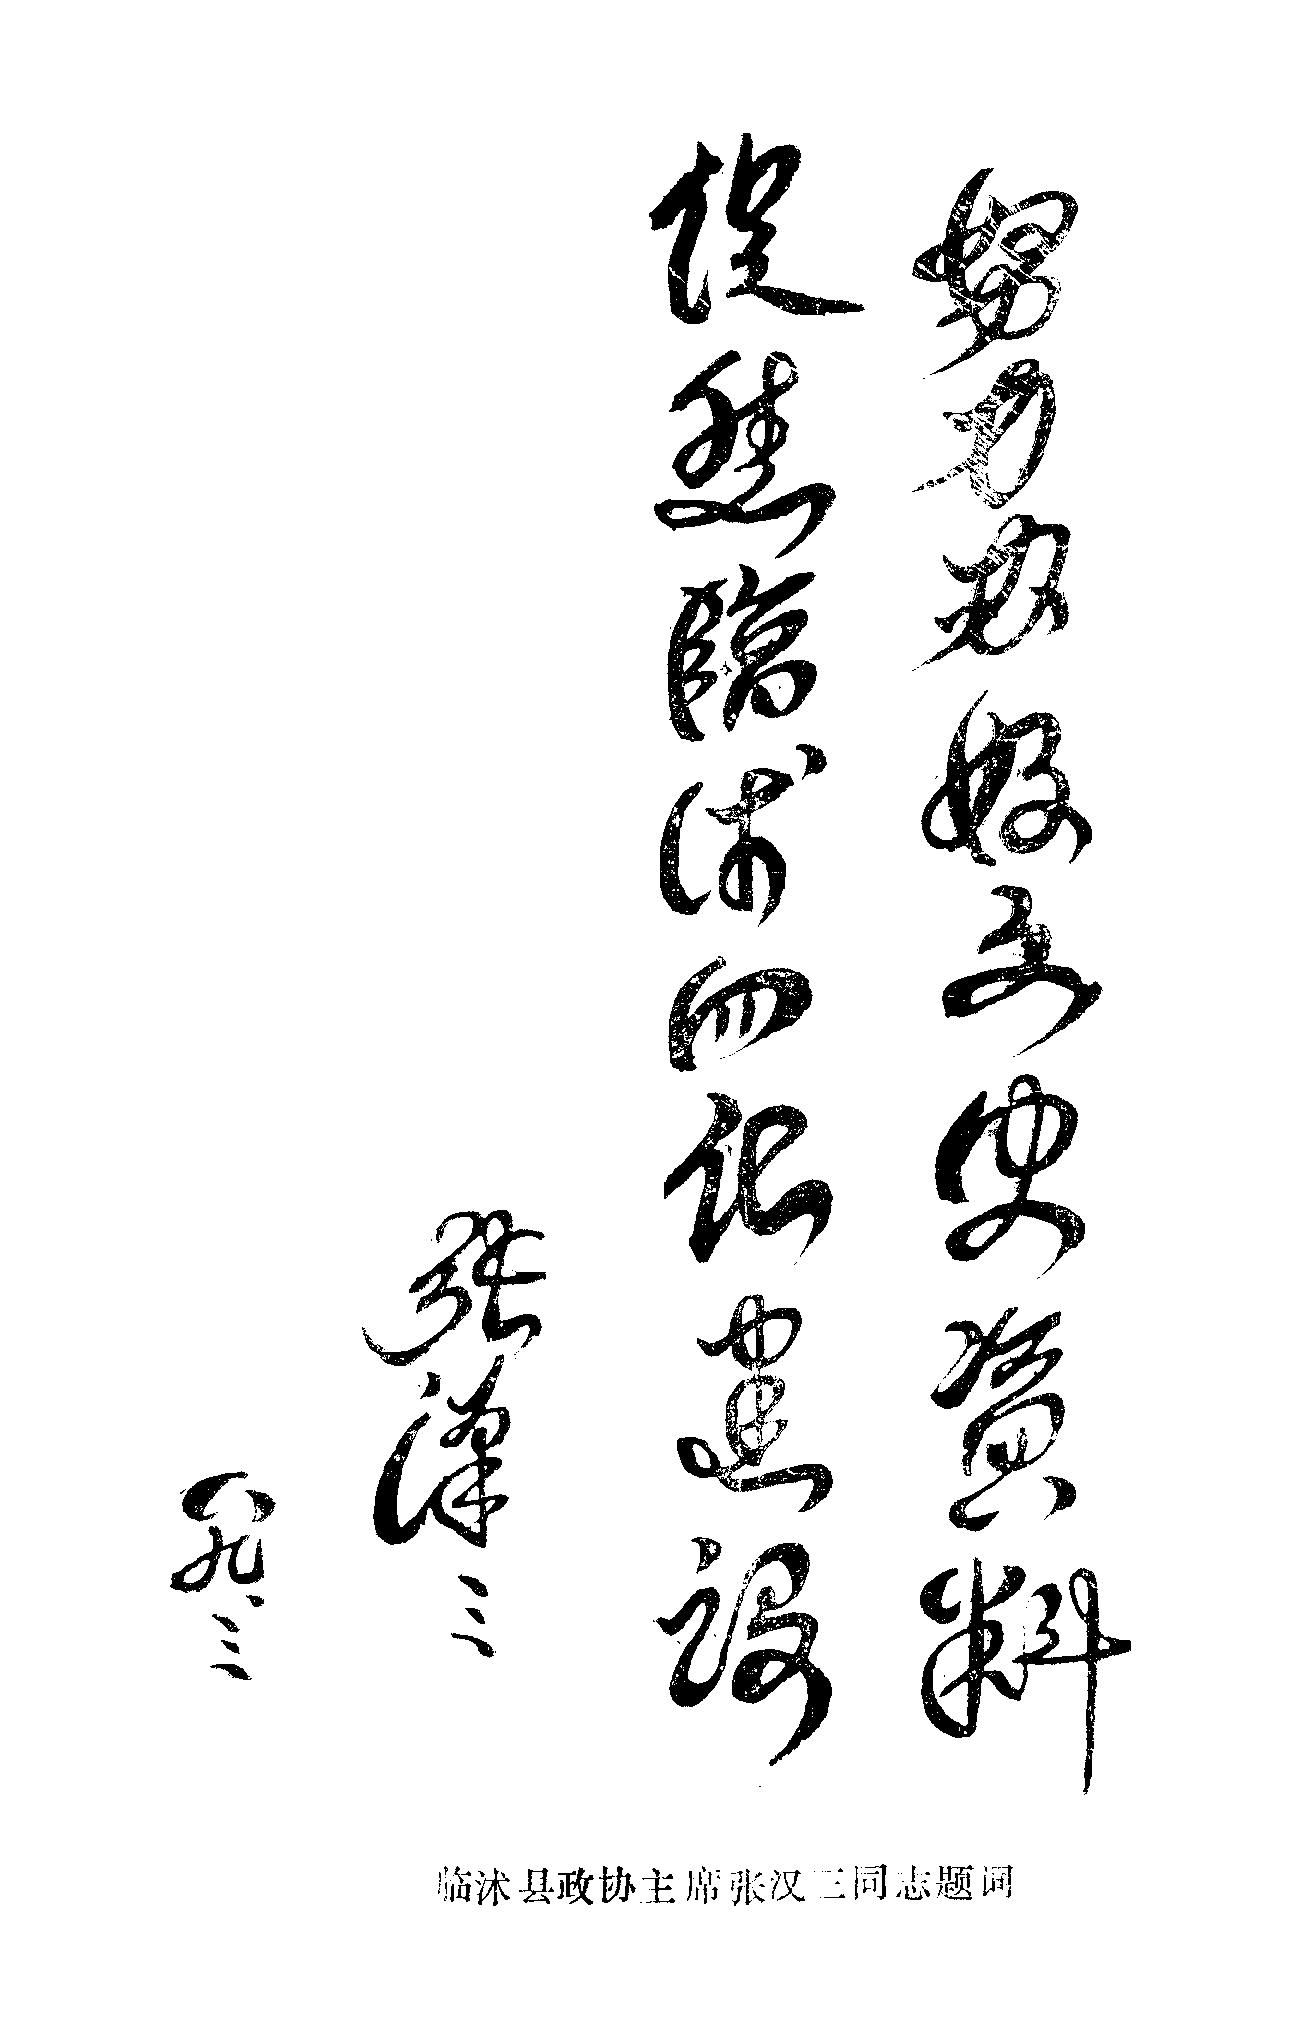 努力办好文史資料
促進臨沭四化建設
張漢三
八九.三
临沭县政协主席张汉三同志题词